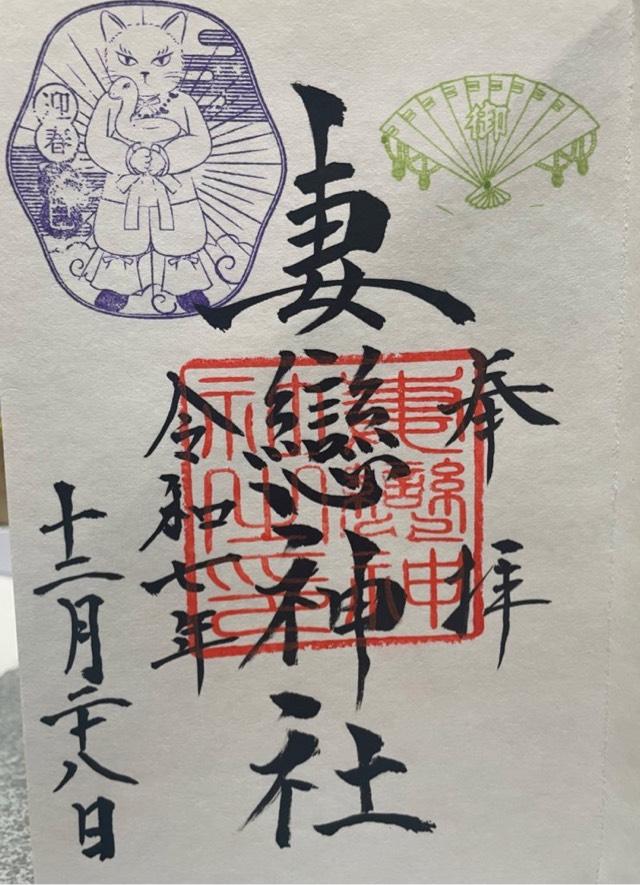 御
奉拝
妻戀神社
妻戀神
社之印
令和七年
十二月二十八日
迎春